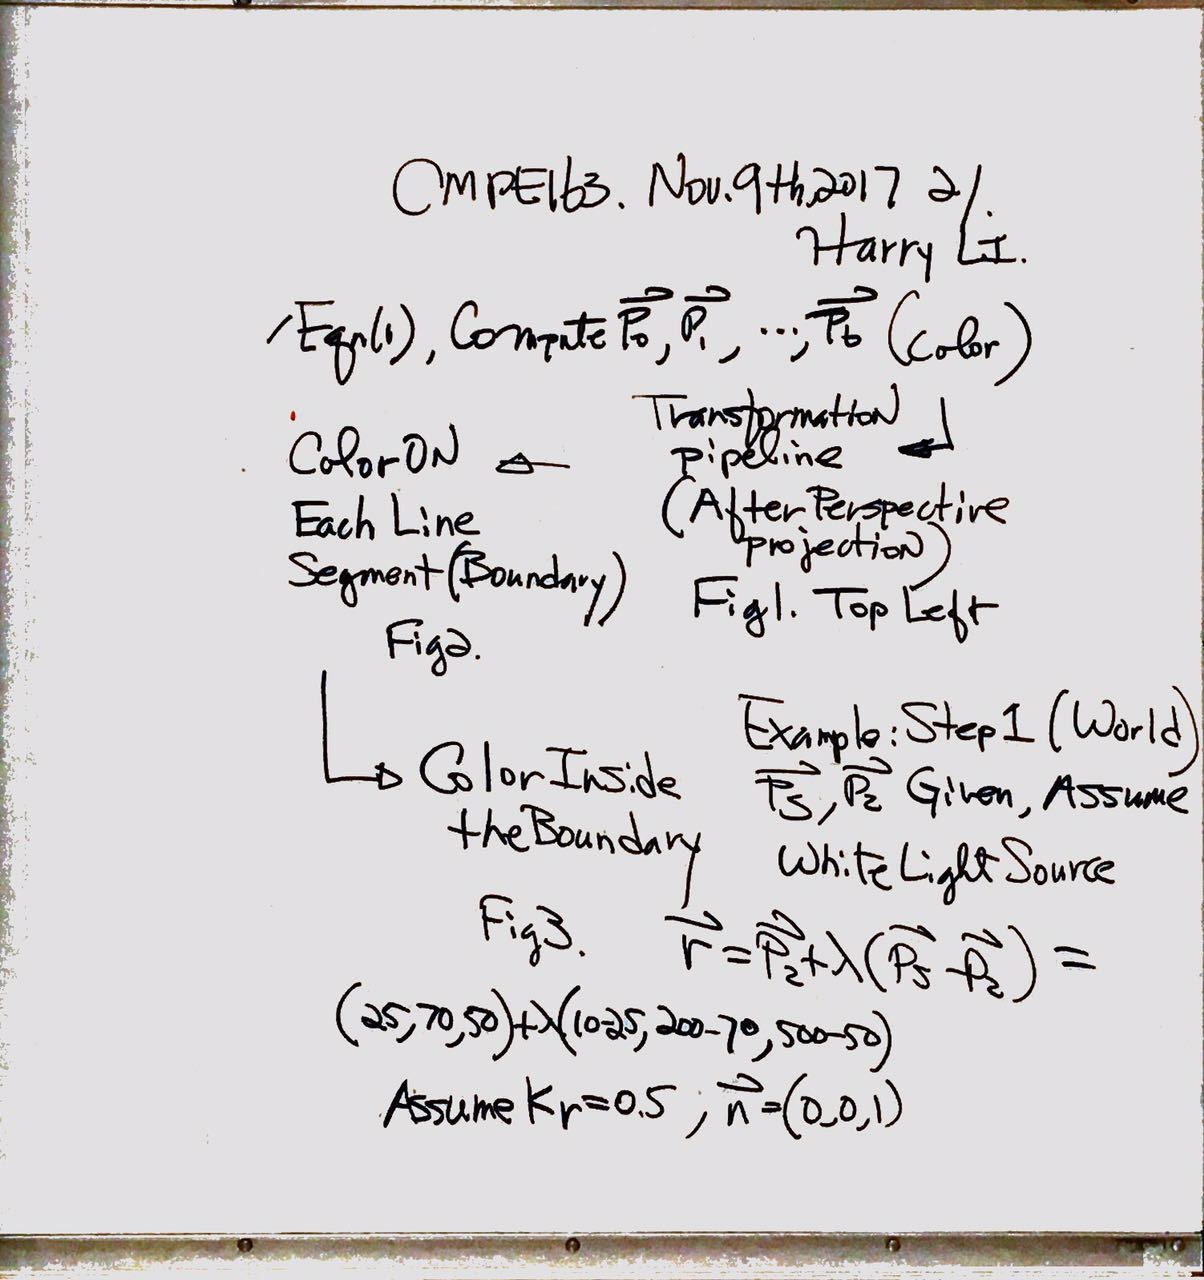 CMPE163. Nov. 9th, 2017 2/.
Harry Li.
Eqn(1), Compute P₀, P₁, ..., P₆ (Color)
Transformation
pipeline
(After Perspective
projection)
Fig1. Top Left
Color ON
Each Line
Segment (Boundary)
Fig2.
Color Inside
the Boundary
Fig3.
Example: Step 1 (World)
P₅, P₂ Given, Assume
White Light Source
r = P₂ + λ(P₅ - P₂) =
(25, 70, 50) + λ(10-25, 200-70, 500-50)
Assume Kr = 0.5, n = (0,0,1)